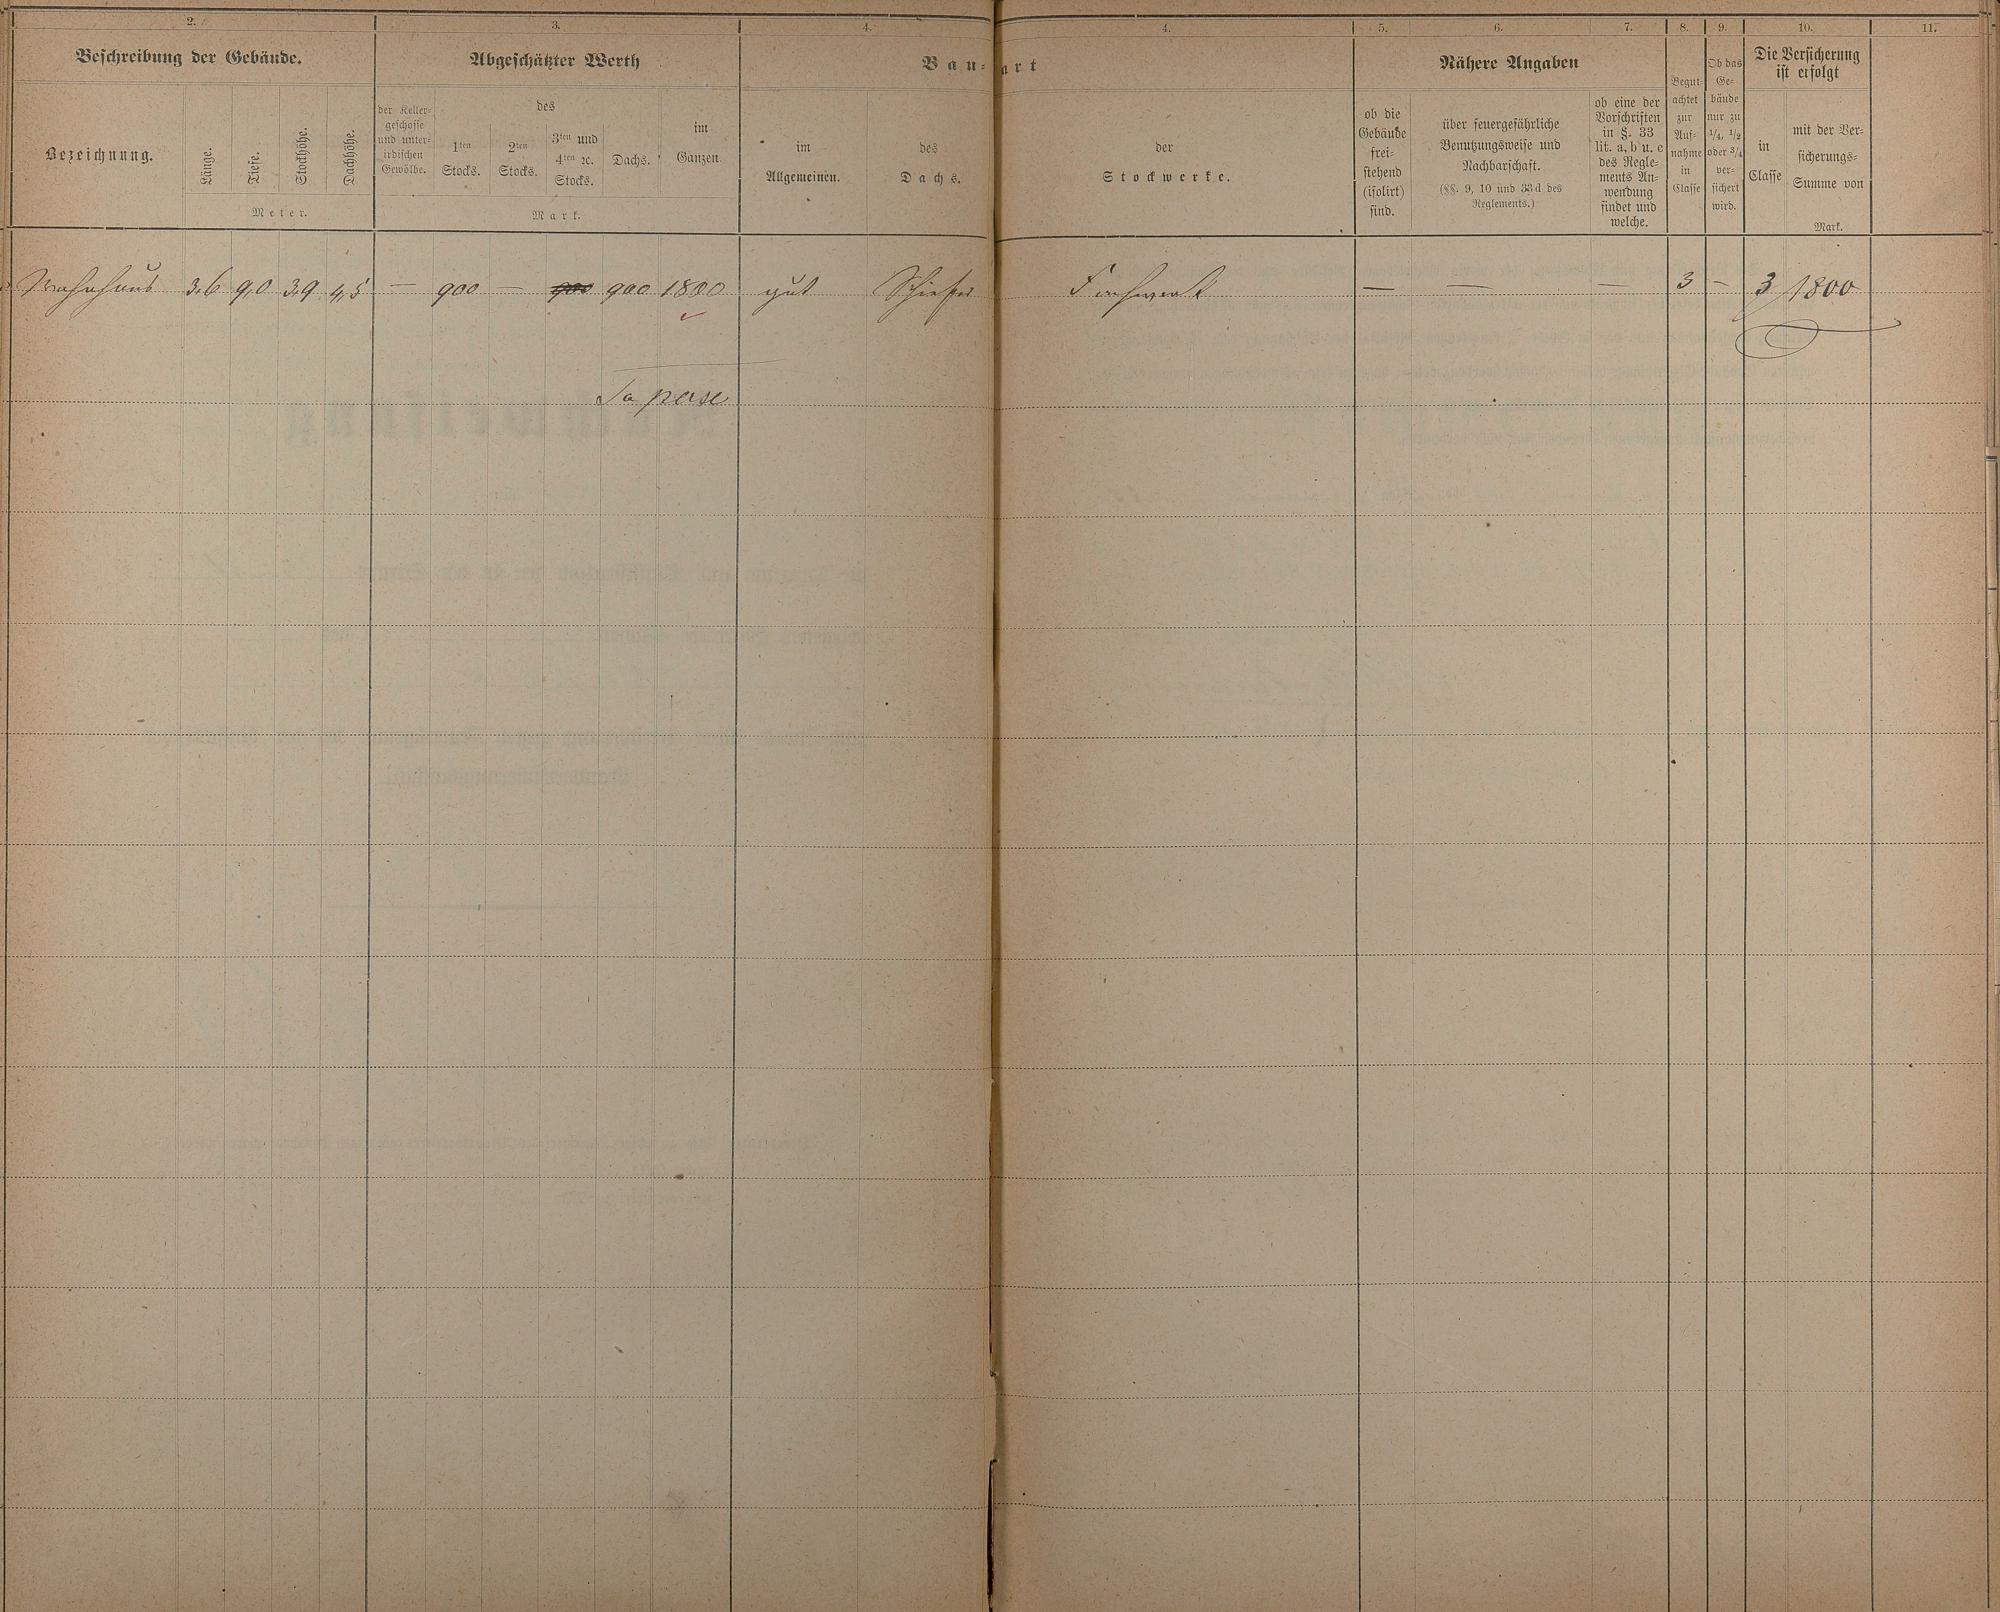 2. 3. 4. 4. 5. 6. 7. 8. 9. 10. 11.
Beschreibung der Gebäude.
Bezeichnung.
Länge.
Tiefe.
Stockhöhe.
Dachhöhe.
Meter.
Abgeschätzter Werth
der Keller-
geschosse
und unter-
irdischen
Gewölbe.
des
1ten
Stocks.
2ten
Stocks.
3ten und
4ten ꝛc.
Stocks.
Dachs.
im
Ganzen.
Mark.
Bau-art
im
Allgemeinen.
des
Dachs.
der
Stockwerke.
Nähere Angaben
ob die
Gebäude
frei-
stehend
(isolirt)
sind.
über feuergefährliche
Benutzungsweise und
Nachbarschaft.
(§§. 9, 10 und 33d des
Reglements.)
ob eine der
Vorschriften
in §. 33
lit. a, b u. c
des Regle-
ments An-
wendung
findet und
welche.
Begut-
achtet
zur
Auf-
nahme
in
Classe
Ob das
Ge-
bäude
nur zu
1/4, 1/2
oder 3/4
ver-
sichert
wird.
Die Versicherung
ist erfolgt
in
Classe
mit der Ver-
sicherungs-
Summe von
Mark.
Wohnhaus 3,6 9,0 3,9 4,5 — 900 — 900 900 1800 gut Schiefer Fachwerk — — — 3 — 3 1800
Sa per se